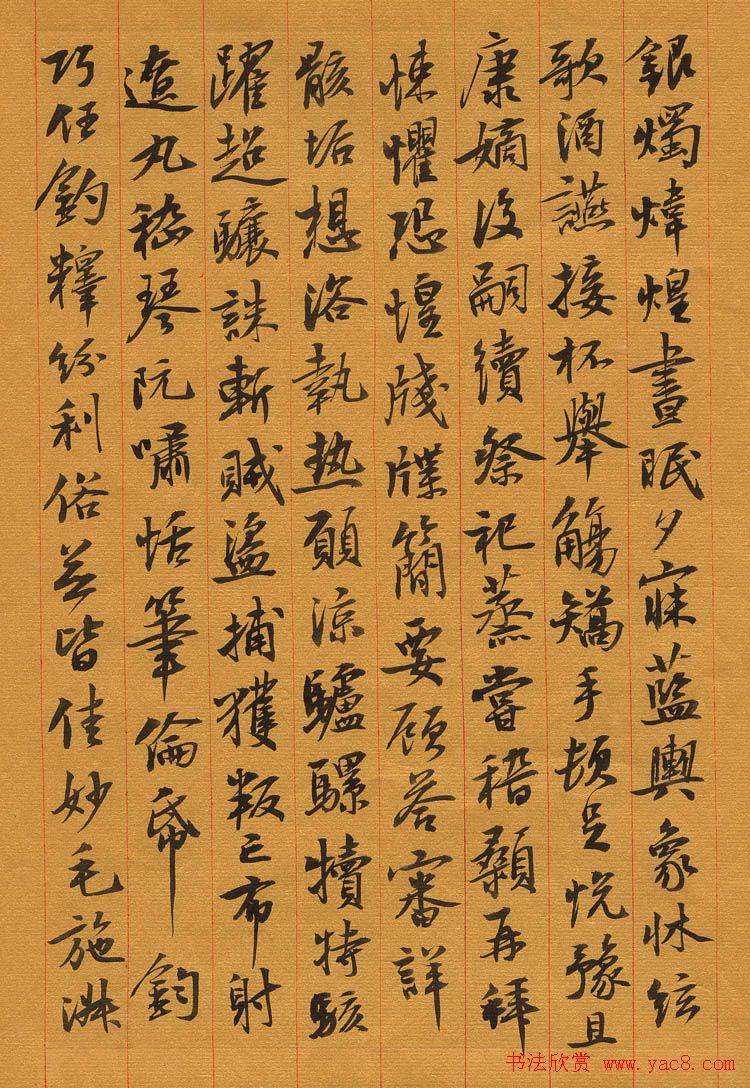 銀燭煒煌晝眠夕寐藍輿象牀絃
歌酒讌接杯舉觴矯手頓足悅豫且
康嫡後嗣續祭祀蒸嘗稽顙再拜
悚懼恐惶牋牒簡要顧答審詳
骸垢想浴執熱願涼驢騾犢特駭
躍超驤誅斬賊盜捕獲叛亡布射
遼丸嵇琴阮嘯恬筆倫帋鈞
巧任釣釋紛利俗並皆佳妙毛施淑
书法欣赏 www.yac8.com